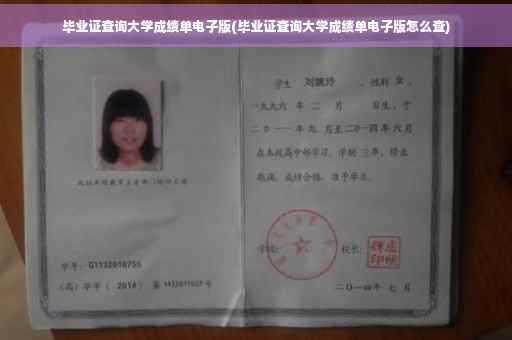 毕业证查询大学成绩单电子版(毕业证查询大学成绩单电子版怎么查)
学生 刘婉玲 ，性别 女 ，
一九九六 年 二 月 日生，于
二〇一一 年 九 月至 二〇一四 年 六 月
在本校高中部学习，学制 三 年，修业
期满，成绩合格，准予毕业。
学校： 校长：
学号： G1132010755
（高）毕字（ 2014 ）第 1432011027 号
二〇一四年 七 月